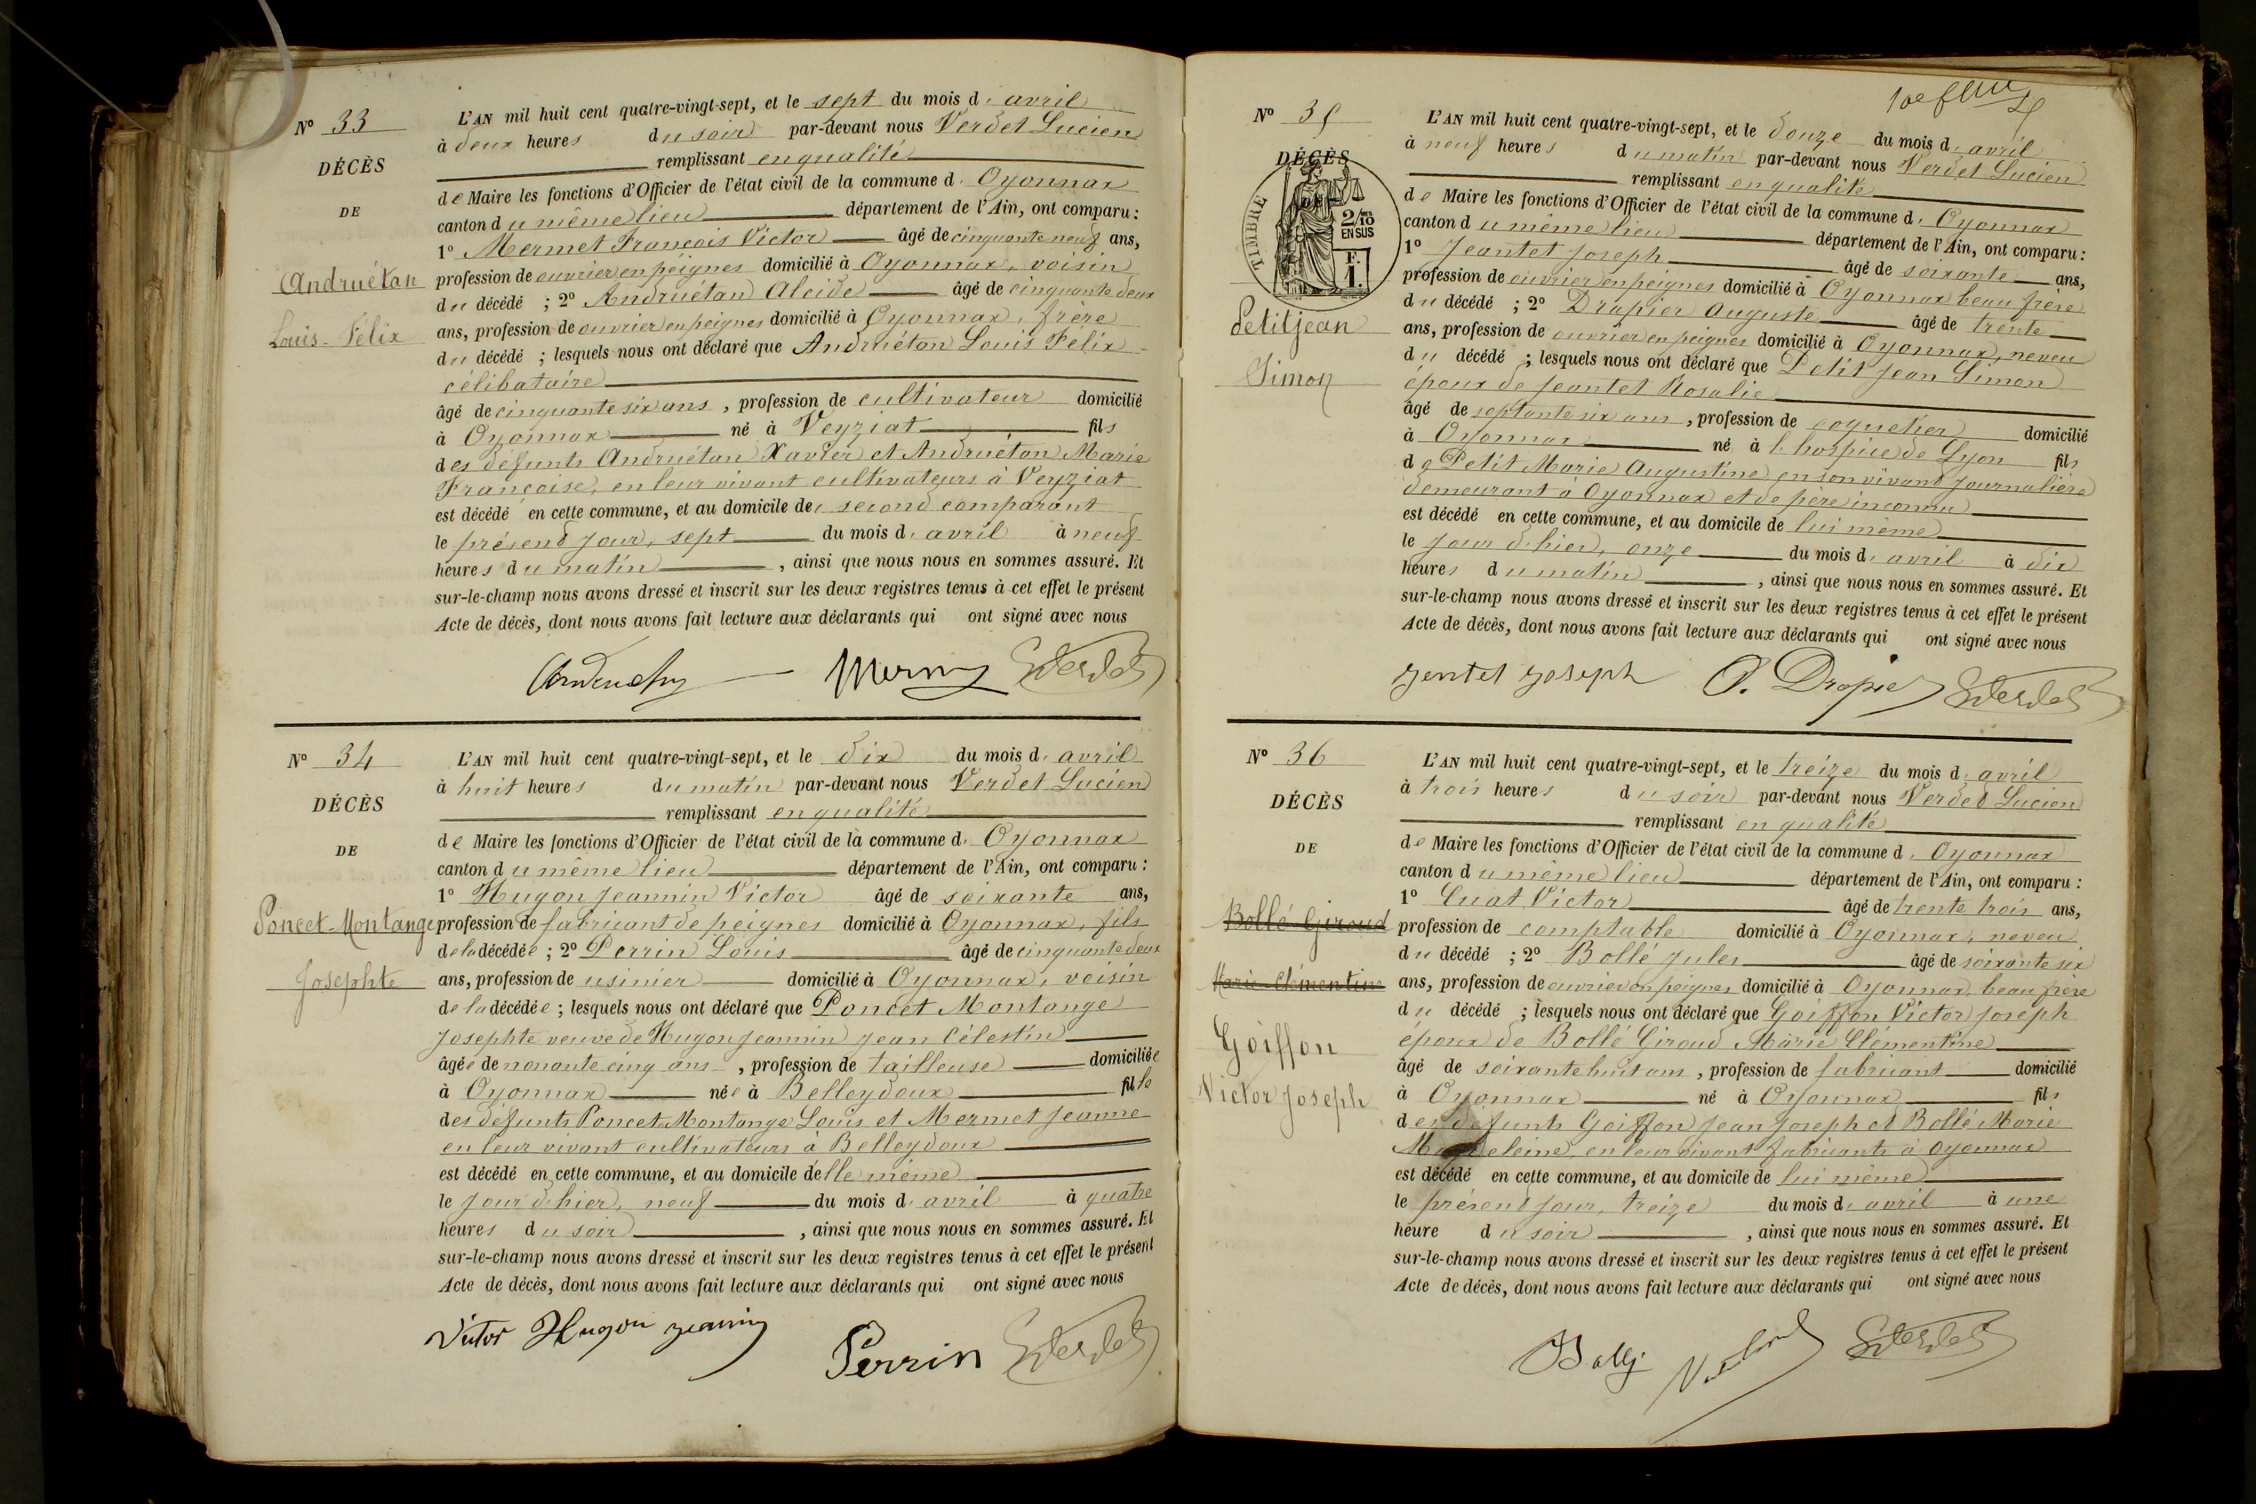 Nº 33
DÉCÈS
DE
Andruétan
Louis Félix
L'AN mil huit cent quatre-vingt-sept, et le sept du mois d' avril
à deux heures du soir par-devant nous Verdet Lucien
remplissant en qualité
de Maire les fonctions d'Officier de l'état civil de la commune d' Oyonnax
canton du même lieu département de l'Ain, ont comparu :
1º Mermet François Victor âgé de cinquante neuf ans,
profession de ouvrier en peignes domicilié à Oyonnax, voisin
du décédé ; 2º Andruétan Alcide âgé de cinquante deux
ans, profession de ouvrier en peignes domicilié à Oyonnax, frère
du décédé ; lesquels nous ont déclaré que Andruétan Louis Félix
célibataire
âgé de cinquante six ans, profession de cultivateur domicilié
à Oyonnax né à Veyziat fils
des défunts Andruétan Xavier et Andruétan Marie
Françoise, en leur vivant cultivateurs à Veyziat
est décédé en cette commune, et au domicile du second comparant
le présent jour, sept du mois d' avril à neuf
heures du matin, ainsi que nous nous en sommes assuré. Et
sur-le-champ nous avons dressé et inscrit sur les deux registres tenus à cet effet le présent
Acte de décès, dont nous avons fait lecture aux déclarants qui ont signé avec nous
Nº 34
DÉCÈS
DE
Poncet-Montange
Josephte
L'AN mil huit cent quatre-vingt-sept, et le dix du mois d' avril
à huit heures du matin par-devant nous Verdet Lucien
remplissant en qualité
de Maire les fonctions d'Officier de l'état civil de la commune d' Oyonnax
canton du même lieu département de l'Ain, ont comparu :
1º Hugon Jeannin Victor âgé de soixante ans,
profession de fabricant de peignes domicilié à Oyonnax, fils
de la décédée ; 2º Perrin Louis âgé de cinquante deux
ans, profession de usinier domicilié à Oyonnax, voisin
de la décédée ; lesquels nous ont déclaré que Poncet Montange
Josephte veuve de Hugon Jeannin Jean Célestin
âgée de nonante cinq ans, profession de tailleuse domiciliée
à Oyonnax née à Belleydoux fille
des défunts Poncet Montange Louis et Mermet Jeanne
en leur vivant cultivateurs à Belleydoux
est décédé en cette commune, et au domicile d'elle même
le jour d'hier, neuf du mois d' avril à quatre
heures du soir, ainsi que nous nous en sommes assuré. Et
sur-le-champ nous avons dressé et inscrit sur les deux registres tenus à cet effet le présent
Acte de décès, dont nous avons fait lecture aux déclarants qui ont signé avec nous
Victor Hugon Jeannin Perrin
Nº 35
DÉCÈS
TIMBRE
2/10
EN SUS
F.
1.
Petitjean
Simon
L'AN mil huit cent quatre-vingt-sept, et le douze du mois d' avril
à neuf heures du matin par-devant nous Verdet Lucien
remplissant en qualité
de Maire les fonctions d'Officier de l'état civil de la commune d' Oyonnax
canton du même lieu département de l'Ain, ont comparu :
1º Jeantet Joseph âgé de soixante ans,
profession de ouvrier en peignes domicilié à Oyonnax beau frère
du décédé ; 2º Drapier Auguste âgé de trente
ans, profession de ouvrier en peignes domicilié à Oyonnax, neveu
du décédé ; lesquels nous ont déclaré que Petit Jean Simon
époux de Jeantet Rosalie
âgé de septante six ans, profession de coquetier domicilié
à Oyonnax né à l'hospice de Lyon fils
de Petit Marie Augustine en son vivant journalière
demeurant à Oyonnax et de père inconnu
est décédé en cette commune, et au domicile de lui même
le jour d'hier, onze du mois d' avril à dix
heures du matin, ainsi que nous nous en sommes assuré. Et
sur-le-champ nous avons dressé et inscrit sur les deux registres tenus à cet effet le présent
Acte de décès, dont nous avons fait lecture aux déclarants qui ont signé avec nous
Jentet Joseph
Nº 36
DÉCÈS
DE
Bollé Giroud
Marie Clémentine
Goiffon
Victor Joseph
L'AN mil huit cent quatre-vingt-sept, et le treize du mois d' avril
à trois heures du soir par-devant nous Verdet Lucien
remplissant en qualité
de Maire les fonctions d'Officier de l'état civil de la commune d' Oyonnax
canton du même lieu département de l'Ain, ont comparu :
1º Cuat Victor âgé de trente trois ans,
profession de comptable domicilié à Oyonnax, neveu
du décédé ; 2º Bollé Jules âgé de soixante six
ans, profession de ouvrier en peignes domicilié à Oyonnax, beau frère
du décédé ; lesquels nous ont déclaré que Goiffon Victor Joseph
époux de Bollé Giroud Marie Clémentine
âgé de soixante huit ans, profession de fabricant domicilié
à Oyonnax né à Oyonnax fils
des défunts Goiffon Jean Joseph et Bollé Marie
Magdeleine, en leur vivant fabricants à Oyonnax
est décédé en cette commune, et au domicile de lui même
le présent jour, treize du mois d' avril à une
heure du soir, ainsi que nous nous en sommes assuré. Et
sur-le-champ nous avons dressé et inscrit sur les deux registres tenus à cet effet le présent
Acte de décès, dont nous avons fait lecture aux déclarants qui ont signé avec nous